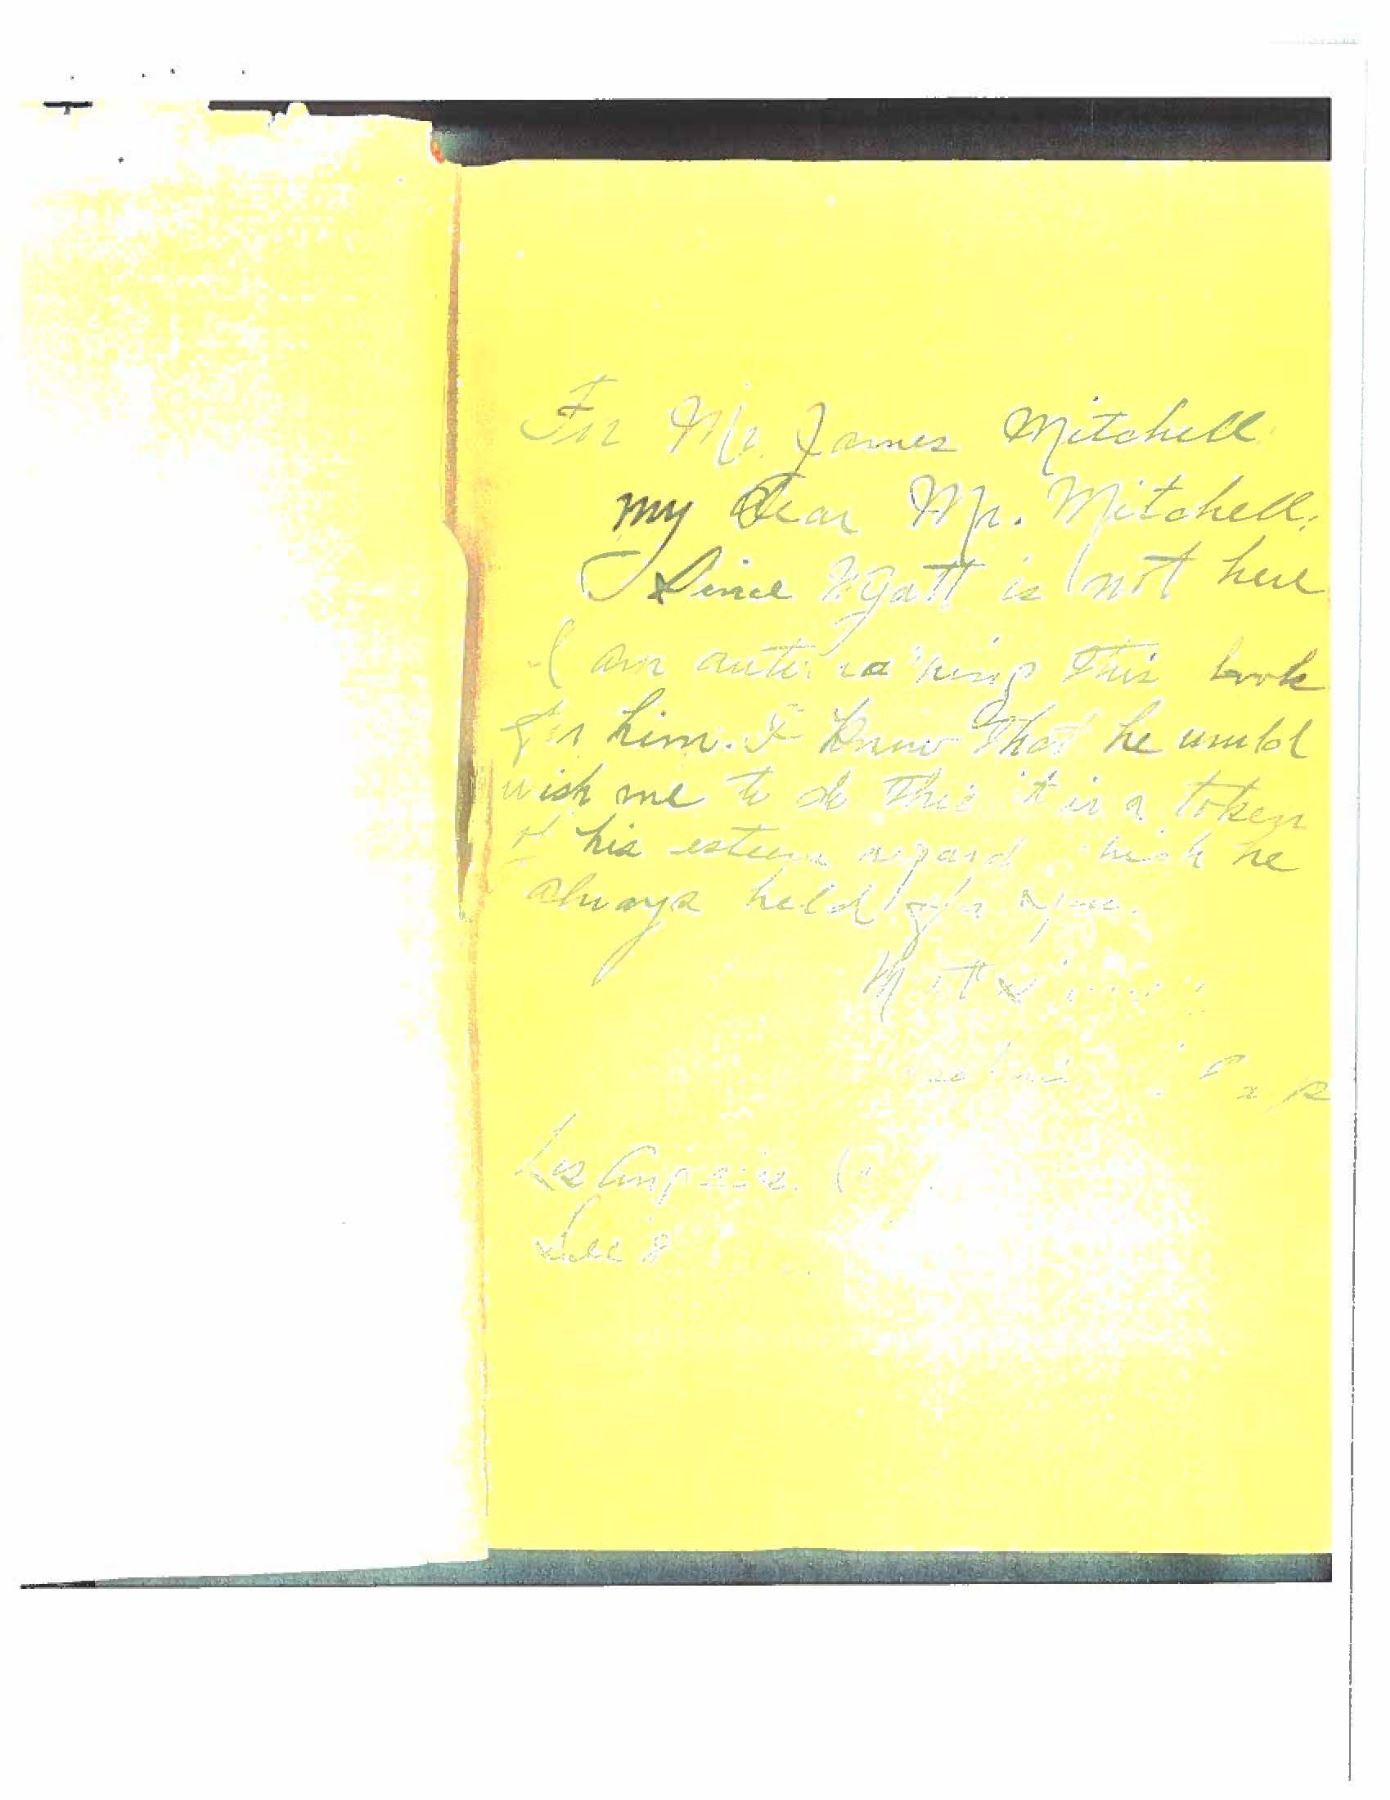 For Mr. James Mitchell
my Dear Mr. Mitchell,
Since Wyatt is not here
I am this book
for him. I know that he would
wish me to do this it is a token
of his esteem regard which he
always held for you.
Los Angeles.